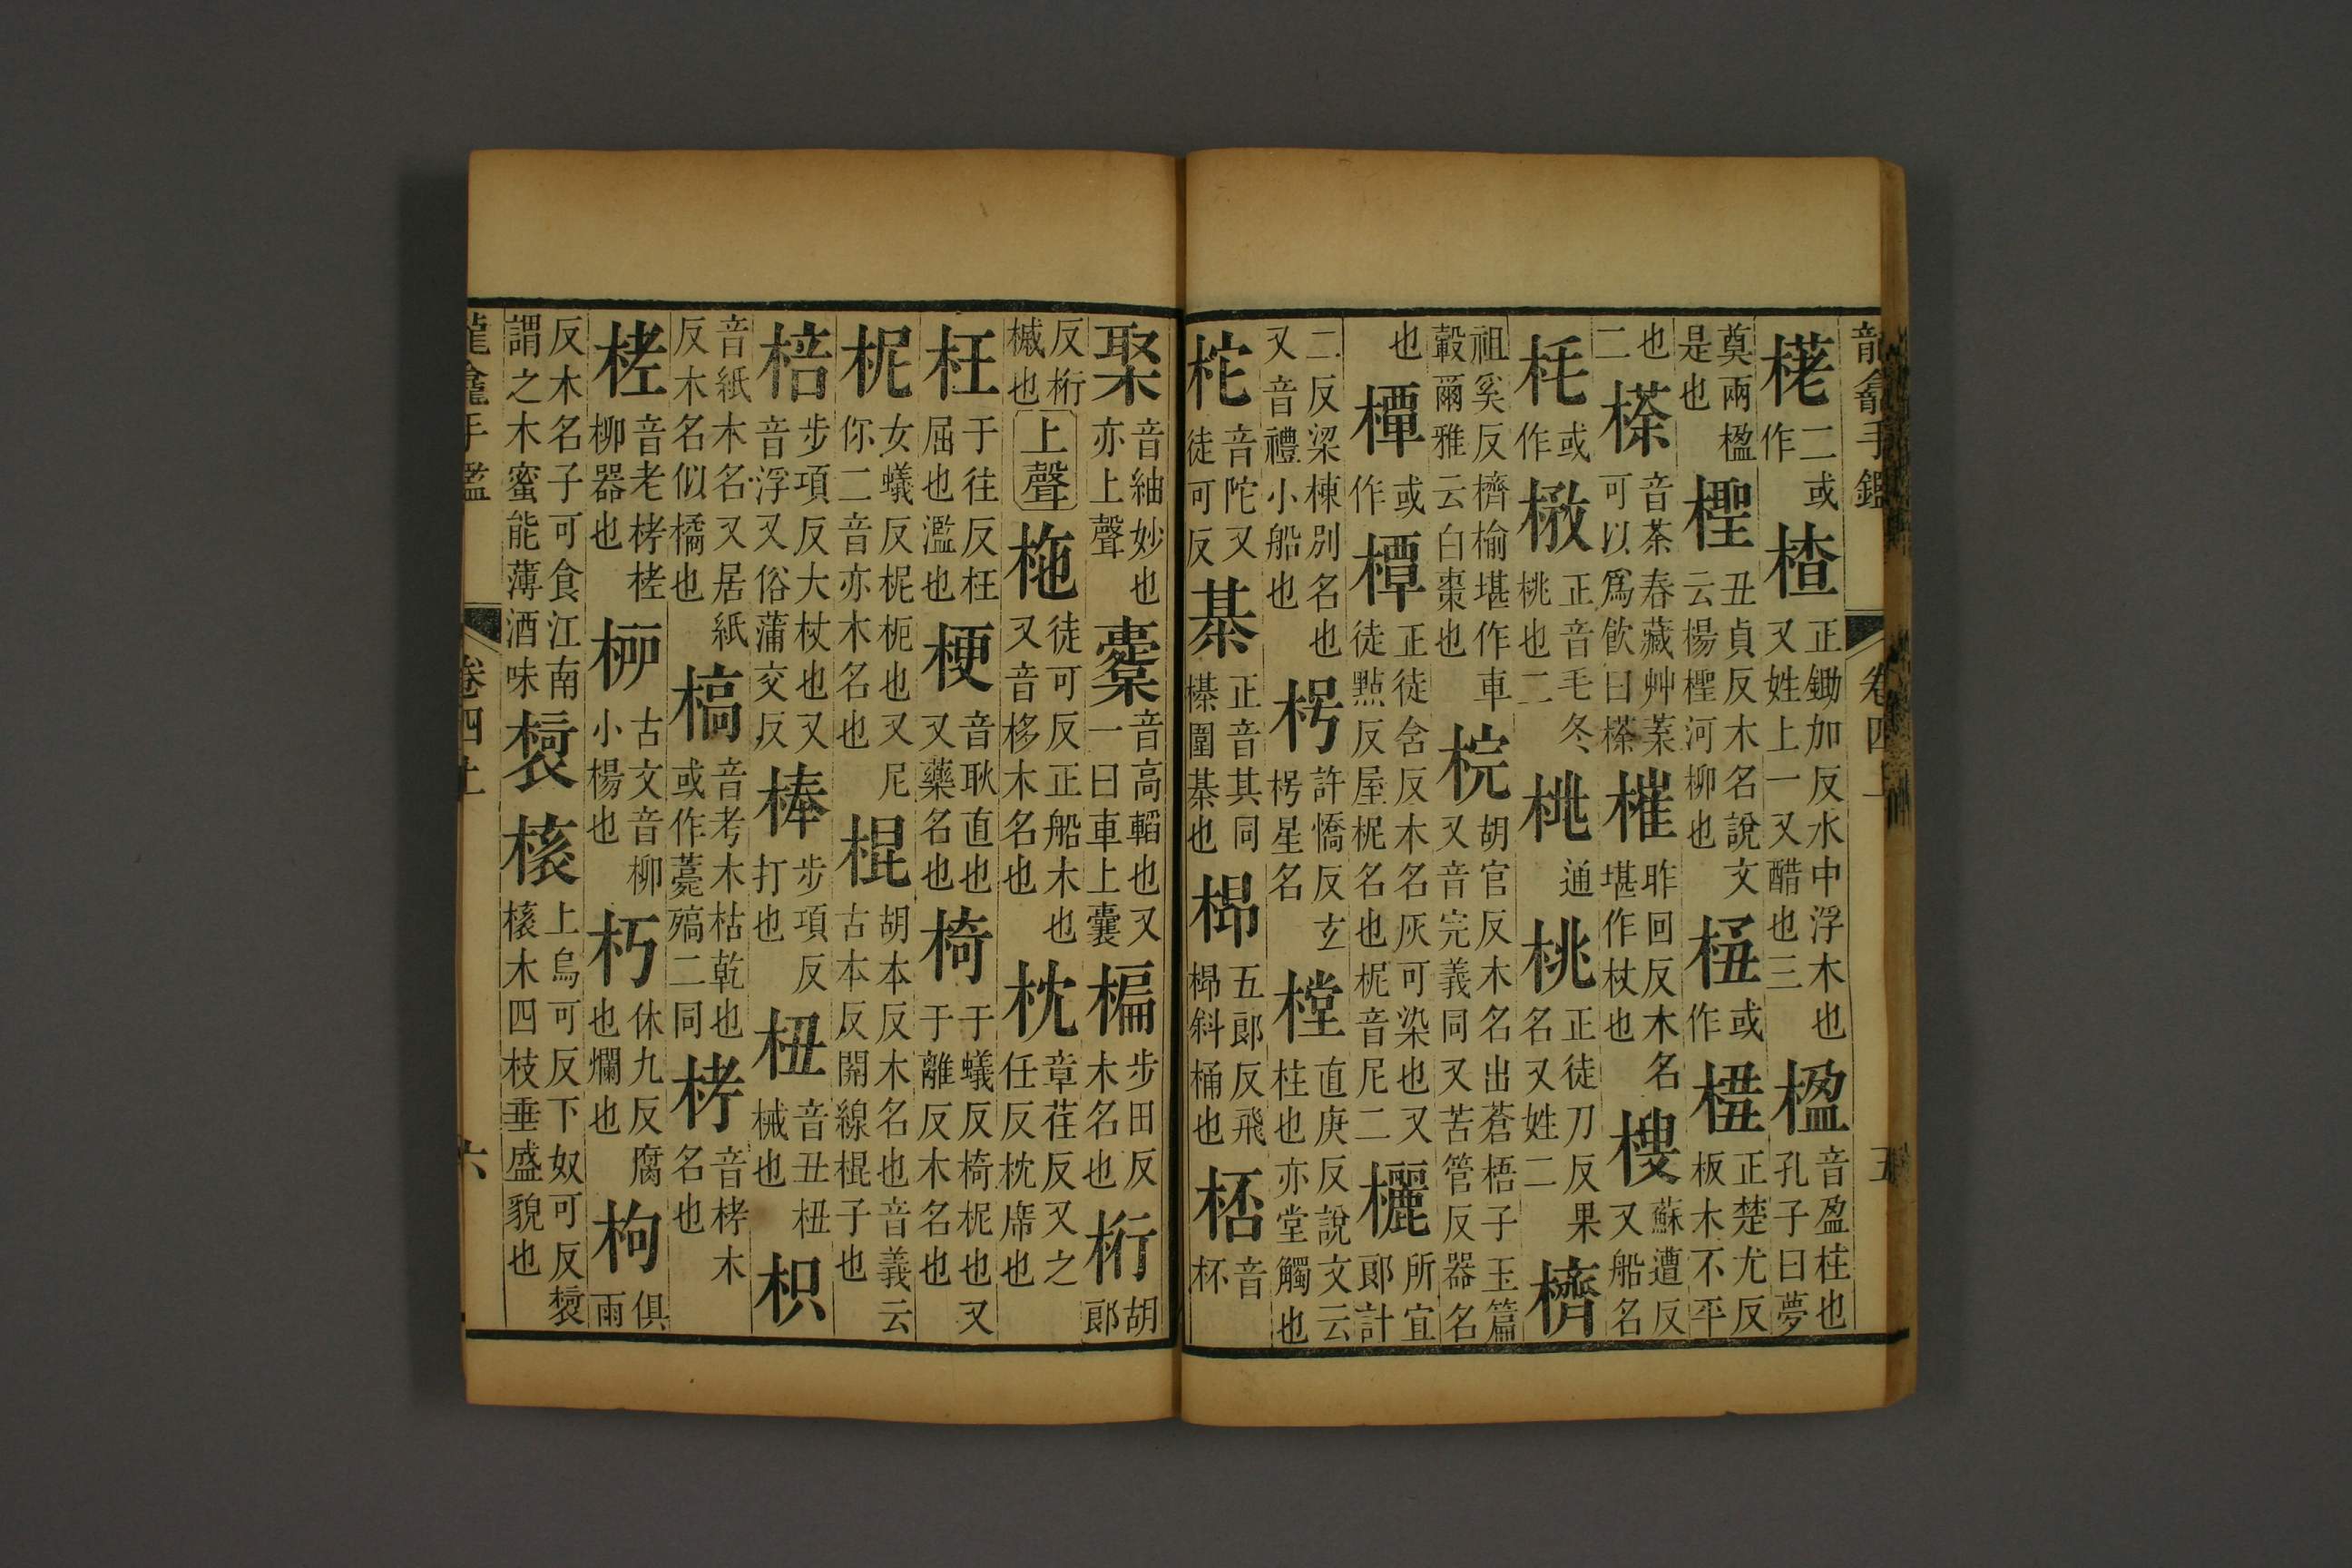 龍龕手鑑 卷四上 五
荖二或作楂正鋤加反水中浮木也又姓上一又醋也三楹音盈柱也孔子曰夢
奠兩楹是也檉丑貞反木名說文云楊檉河柳也或作正楚尤反板木不平
也二㯆音茶春藏艸葉可以爲飮曰㯆槯昨回反木名堪作杖也㮴蘇遭反又船名
枆或作橔正音毛冬桃也二桃通桃正徒刀反果名又姓二櫅
祖奚反櫅榆堪作車轂爾雅云白棗也梡胡官反木名出蒼梧子玉篇又音完義同又苦管反器名
也橝或作橝正徒含反木名灰可染也又徒點反屋梠名也梠音尼二欐所宜郎計
二反梁棟別名也又音禮小船也枵許憍反玄枵星名樘直庚反說文云柱也亦堂觸也
柁音陀又徒可反棊正音其同檱圍棊也枊五郎反飛枊斜桶也桮音杯
棸音紬妙也亦上聲櫜音高韜也又一曰車上囊楄步田反木名也桁胡郎
反桁槭也上聲柂徒可反正船木也又音栘木名也枕章荏反又之任反枕席也
枉于往反枉屈也濫也梗音耿直也又藥名也椅于蟻反椅柅也又于離反木名也
柅女蟻反柅柅也又尼你二音亦木名也棍胡本反木名也音義云古本反開線棍子也
棓步項反大杖也又音浮又俗蒲交反棒步項反打也杻音丑杻械也枳
音紙木名又居紙反木名似橘也槁音考木枯乾也或作薧㱿二同栲音栲木名也
栳音老栲栳柳器也桺古文音柳小楊也朽休九反腐也爛也枸俱雨
反木名子可食江南謂之木蜜能薄酒味榱上烏可反下奴可反榱木四枝垂盛貌也
龍龕手鑑 卷四上 六